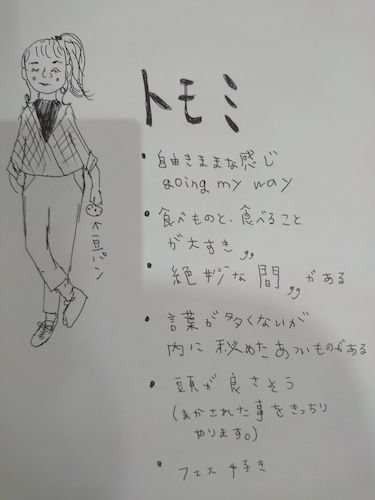 トモミ
・自由きままな感じ
going my way
・食べものと、食べること
が大すき,,
・絶妙な間,,がある
・言葉が多くないが
内に秘めたあついものがある
・頭が良さそう
(まかされた事をきっちり
やります。)
・フェス好き
豆パン